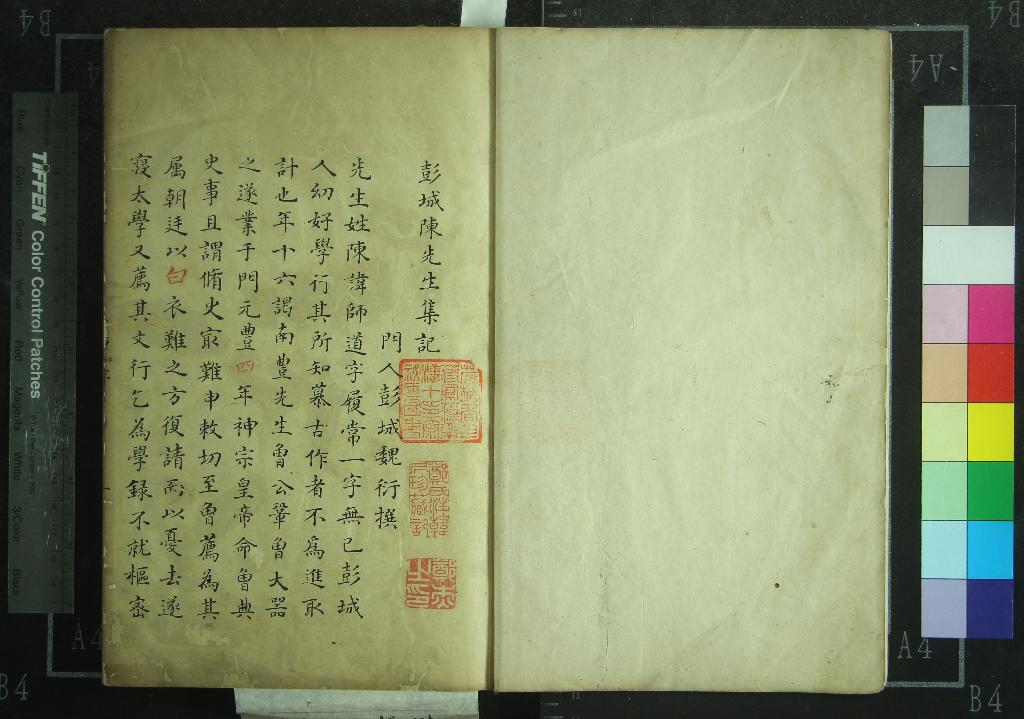 彭城陳先生集記
門人彭城魏衍撰
先生姓陳諱師道字履常一字無已彭城
人幼好學行其所知慕古作者不為進取
計也年十六謁南豐先生曾公鞏曾大器
之遂業于門元豐四年神宗皇帝命曾典
史事且謂脩史㝡難申敕切至曾薦為其
属朝廷以白衣難之方復請而以憂去遂
寢太學又薦其文行乞為學録不就樞密
TIFFEN Color Control Patches
Blue
Cyan
Green
Yellow
Red
Magenta
White
3/Color
Black
A4
A4
A4
B4
B4
B4
B4